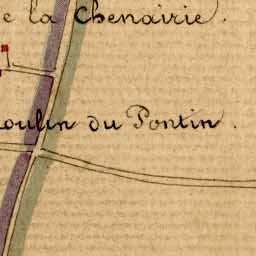 e la Chenairie.
oulin du Pontin.